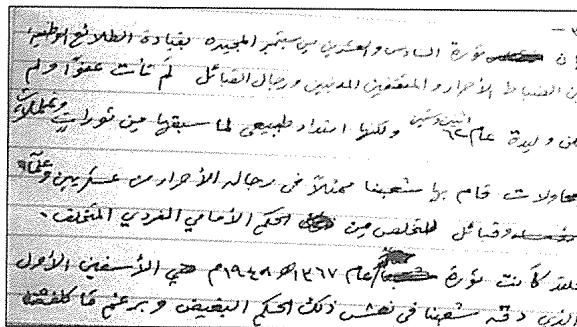 ٣ –
إن ثورة السادس والعشرين من سبتمبر المجيده بقيادة الطلائع الوطنيه
من الضباط الأحرار والمثقفين المدنيين ورجال القبائل لم تأت عفوًا ولم
تكن وليدة عام ٦٢ اثنين وستين ولكنها امتداد طبيعي لما سبقها من ثورات
محاولات قام بها شعبنا ممثلاً في رجاله الأحرار من عسكريين
وقبائل للتخلص من الحكم الأمامي الفردي المتخلف .
فلقد كانت ثورة عام ١٣٦٧هـ ١٩٤٨م هي الأسفين الأول
الذي دقه شعبنا في نعش ذلك الحكم البغيض وبرغم ما كلفته